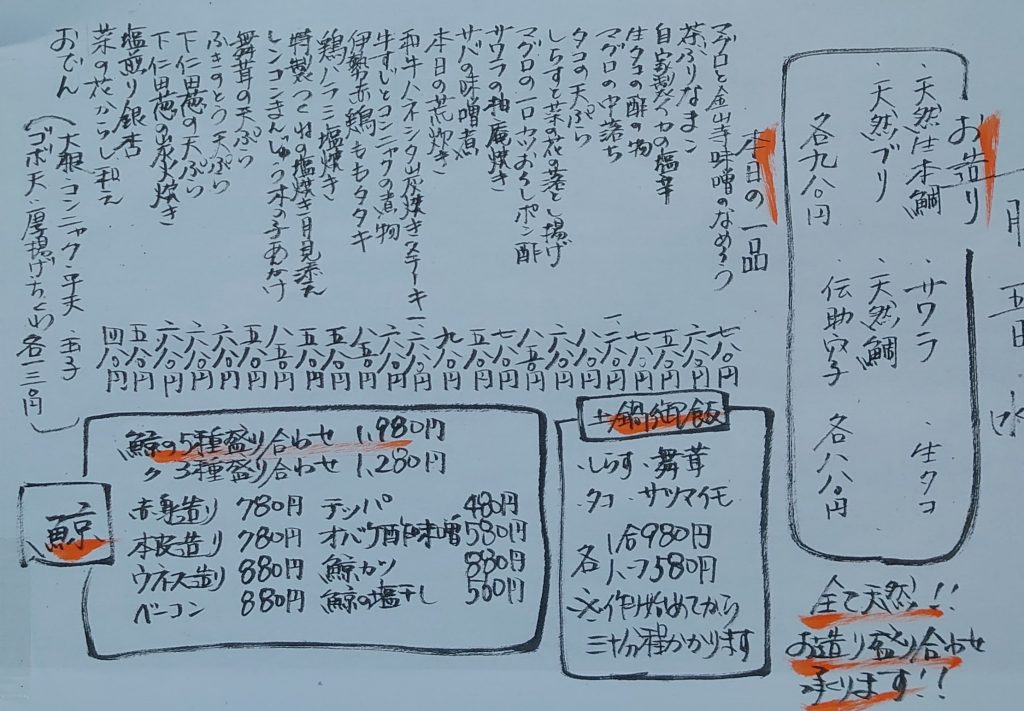 月 五日 水
お造り
・天然生本鯛
・天然ブリ
各九八〇円
・サワラ
・天然鯛
・伝助穴子
・生タコ
各八八〇円
全て天然!!
お造り盛り合わせ
承ります!!
本日の一品
マグロと金山寺味噌のなめろう 七八〇円
茶ぶりなまこ 六八〇円
自家製イカの塩辛 五八〇円
生タコの酢の物 七八〇円
マグロの中落ち
タコの天ぷら 八八〇円
しらすと菜の花の落とし揚げ
マグロの一口カツおろしポン酢
サワラの柚庵焼き
サバの味噌煮
本日の荒炊き
和牛ハネシタ炭焼きステーキ
牛すじとコンニャクの煮物
伊勢赤鶏ももタタキ
鶏ハラミ塩焼き
特製つくねの塩焼き月見添え
レンコンまんじゅう木の子あんかけ
舞茸の天ぷら 五八〇円
ふきのとう天ぷら 六八〇円
下仁田葱の天ぷら 六八〇円
下仁田葱の炭火焼き 六八〇円
塩煎り銀杏 五八〇円
菜の花からし和え 四八〇円
おでん
(大根・コンニャク・平天・玉子
ゴボ天・厚揚げ・ちくわ 各一三〇円)
土鍋御飯
・しらす・舞茸
・タコ・サツマイモ
各 1合980円
ハーフ580円
※作り始めてから
三十分程かかります
鯨
鯨の5種盛り合わせ 1,980円
〃 3種盛り合わせ 1,280円
赤身造り 780円
本皮造り 780円
ウネス造り 880円
ベーコン 880円
テッパ 480円
オバケ酢味噌 580円
鯨カツ 880円
鯨の塩干し 500円